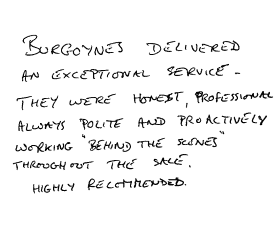 BURGOYNES DELIVERED
AN EXCEPTIONAL SERVICE -
THEY WERE HONEST, PROFESSIONAL
ALWAYS POLITE AND PROACTIVELY
WORKING "BEHIND THE SCENES"
THROUGHOUT THE SALE.
HIGHLY RECOMMENDED.